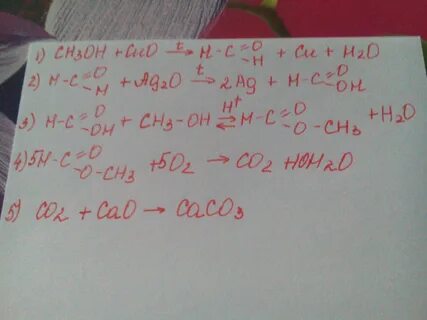 1) CH3OH + CuO t→ H-C=O-H + Cu + H2O
2) H-C=O-H + Ag2O t→ 2Ag + H-C=O-OH
3) H-C=O-OH + CH3-OH H+⇌ H-C=O-O-CH3 + H2O
4) 5H-C=O-O-CH3 + 5O2 → CO2 + 10H2O
5) CO2 + CaO → CaCO3